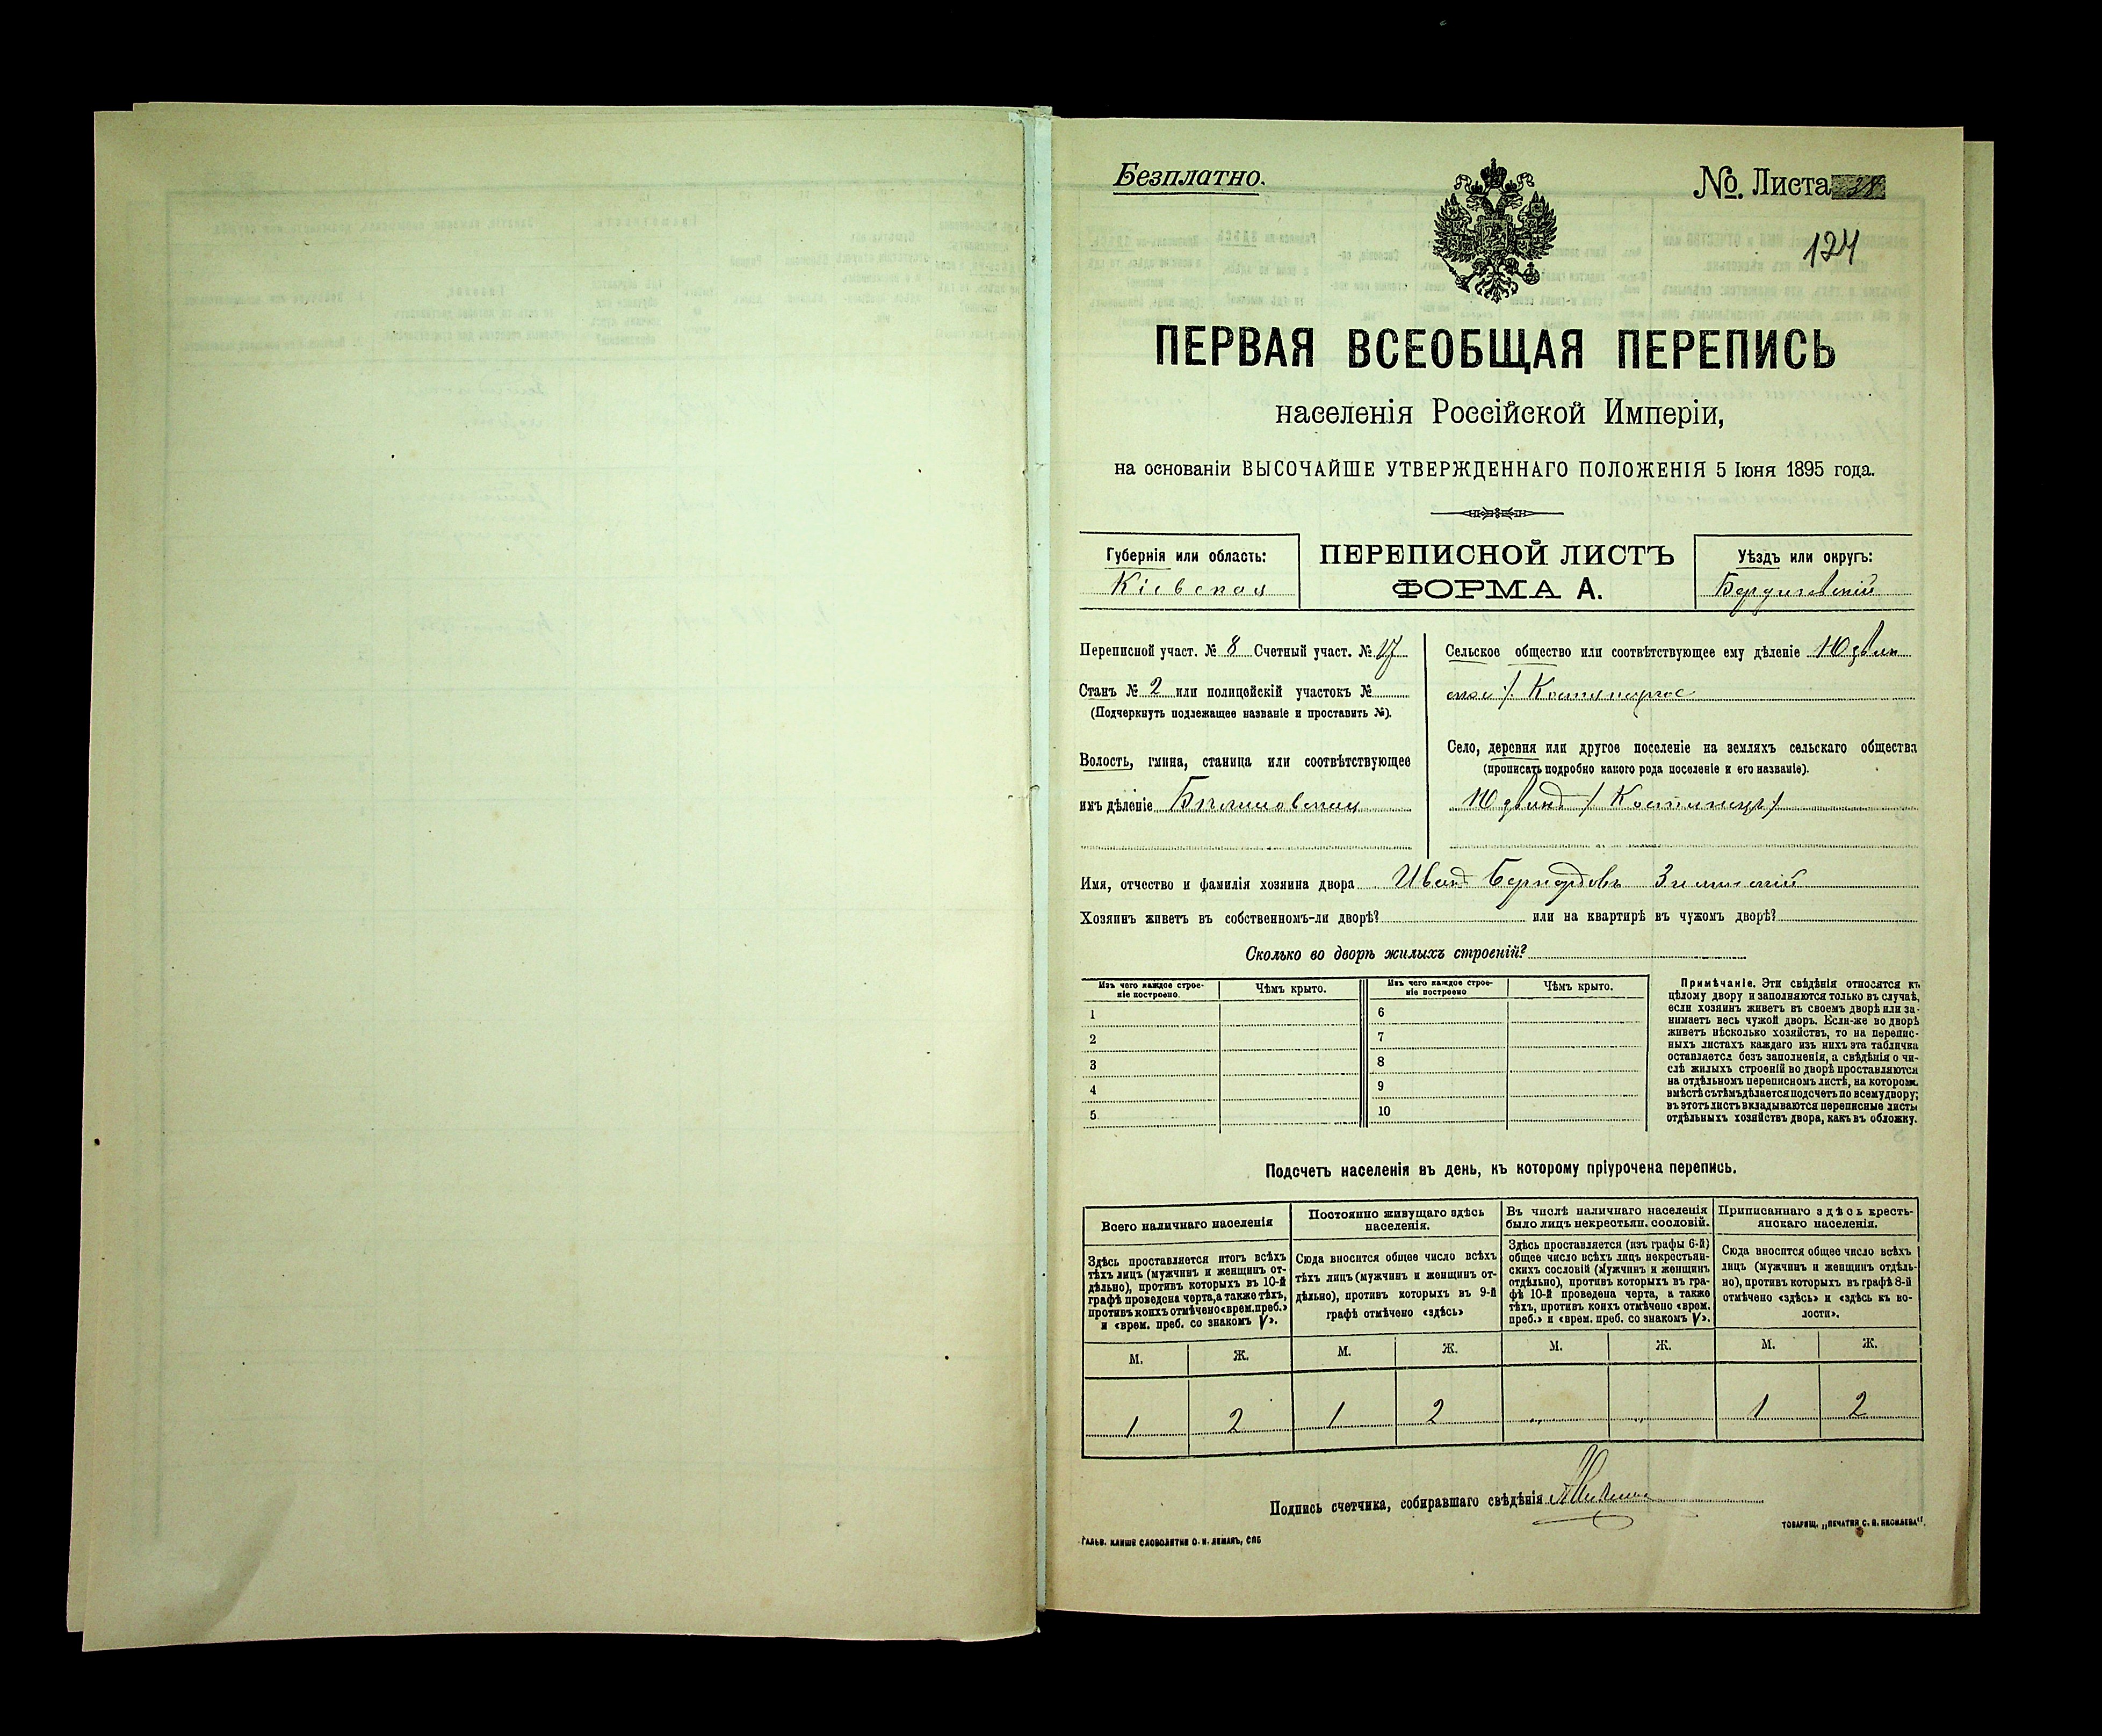 Безплатно.
№. Листа 38
124
ПЕРВАЯ ВСЕОБЩАЯ ПЕРЕПИСЬ
населенія Россійской Имперіи,
на основаніи ВЫСОЧАЙШЕ УТВЕРЖДЕННАГО ПОЛОЖЕНІЯ 5 Іюня 1895 года.
Губернія или область:
Кіевская
ПЕРЕПИСНОЙ ЛИСТЪ
ФОРМА А.
Уѣздъ или округъ:
Бердичевскій
Переписной участ. № 8 Счетный участ. № 17
Станъ № 2 или полицейскій участокъ №
(Подчеркнуть подлежащее названіе и проставить №).
Волость, гмина, станица или соотвѣтствующее
имъ дѣленіе
Сельское общество или соотвѣтствующее ему дѣленіе
Село, деревня или другое поселеніе на земляхъ сельскаго общества
(прописать подробно какого рода поселеніе и его названіе).
Имя, отчество и фамилія хозяина двора Иванъ
Хозяинъ живетъ въ собственномъ-ли дворѣ? или на квартирѣ въ чужомъ дворѣ?
Сколько во дворѣ жилыхъ строеній?
Изъ чего каждое строе-
ніе построено.
Чѣмъ крыто.
Изъ чего каждое строе-
ніе построено
Чѣмъ крыто.
1
2
3
4
5
6
7
8
9
10
Примѣчаніе. Эти свѣдѣнія относятся къ
цѣлому двору и заполняются только въ случаѣ,
если хозяинъ живетъ въ своемъ дворѣ или за-
нимаетъ весь чужой дворъ. Если-же во дворѣ
живетъ нѣсколько хозяйствъ, то на перепис-
ныхъ листахъ каждаго изъ нихъ эта табличка
оставляется безъ заполненія, а свѣдѣнія о чи-
слѣ жилыхъ строеній во дворѣ проставляются
на отдѣльномъ переписномъ листѣ, на которомъ
вмѣстѣ съ тѣмъ дѣлается подсчетъ по всему двору;
въ этотъ листъ вкладываются переписные листы
отдѣльныхъ хозяйствъ двора, какъ въ обложку.
Подсчетъ населенія въ день, къ которому пріурочена перепись.
Всего наличнаго населенія
Здѣсь проставляется итогъ всѣхъ
тѣхъ лицъ (мужчинъ и женщинъ от-
дѣльно), противъ которыхъ въ 10-й
графѣ проведена черта, а также тѣхъ,
противъ коихъ отмѣчено «врем. преб.»
и «врем. преб. со знакомъ V».
Постоянно живущаго здѣсь
населенія.
Сюда вносится общее число всѣхъ
тѣхъ лицъ (мужчинъ и женщинъ от-
дѣльно), противъ которыхъ въ 9-й
графѣ отмѣчено «здѣсь»
Въ числѣ наличнаго населенія
было лицъ некрестьян. сословій.
Здѣсь проставляется (изъ графы 6-й)
общее число всѣхъ лицъ некрестьян-
скихъ сословій (мужчинъ и женщинъ
отдѣльно), противъ которыхъ въ гра-
фѣ 10-й проведена черта, а также
тѣхъ, противъ коихъ отмѣчено «врем.
преб.» и «врем. преб. со знакомъ V».
Приписаннаго здѣсь кресть-
янскаго населенія.
Сюда вносится общее число всѣхъ
лицъ (мужчинъ и женщинъ отдѣль-
но), противъ которыхъ въ графѣ 8-й
отмѣчено «здѣсь» и «здѣсь къ во-
лости».
М. Ж. М. Ж. М. Ж. М. Ж.
1 2 1 2 1 2
Подпись счетчика, собиравшаго свѣдѣнія
ГАЛЬВ. КЛИШЕ СЛОВОЛИТНИ О. И. ЛЕМАНЪ, СПБ
ТОВАРИЩ. „ПЕЧАТНЯ С. П. ЯКОВЛЕВА".